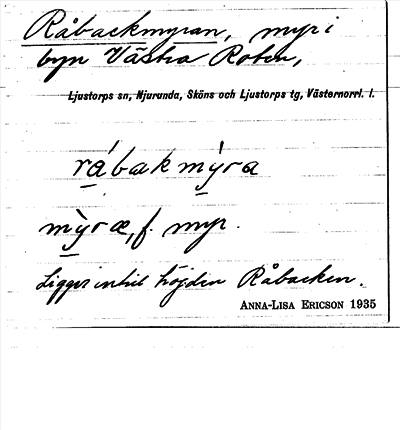 Råbackmyran, myr i
byn Västra Roten,
Ljustorps sn, Njurunda, Sköns och Ljustorps tg, Västernorrl. l.
rábak mýra
mỳræ, f. myr.
Ligger intill höjden Råbacken.
ANNA-LISA ERICSON 1935